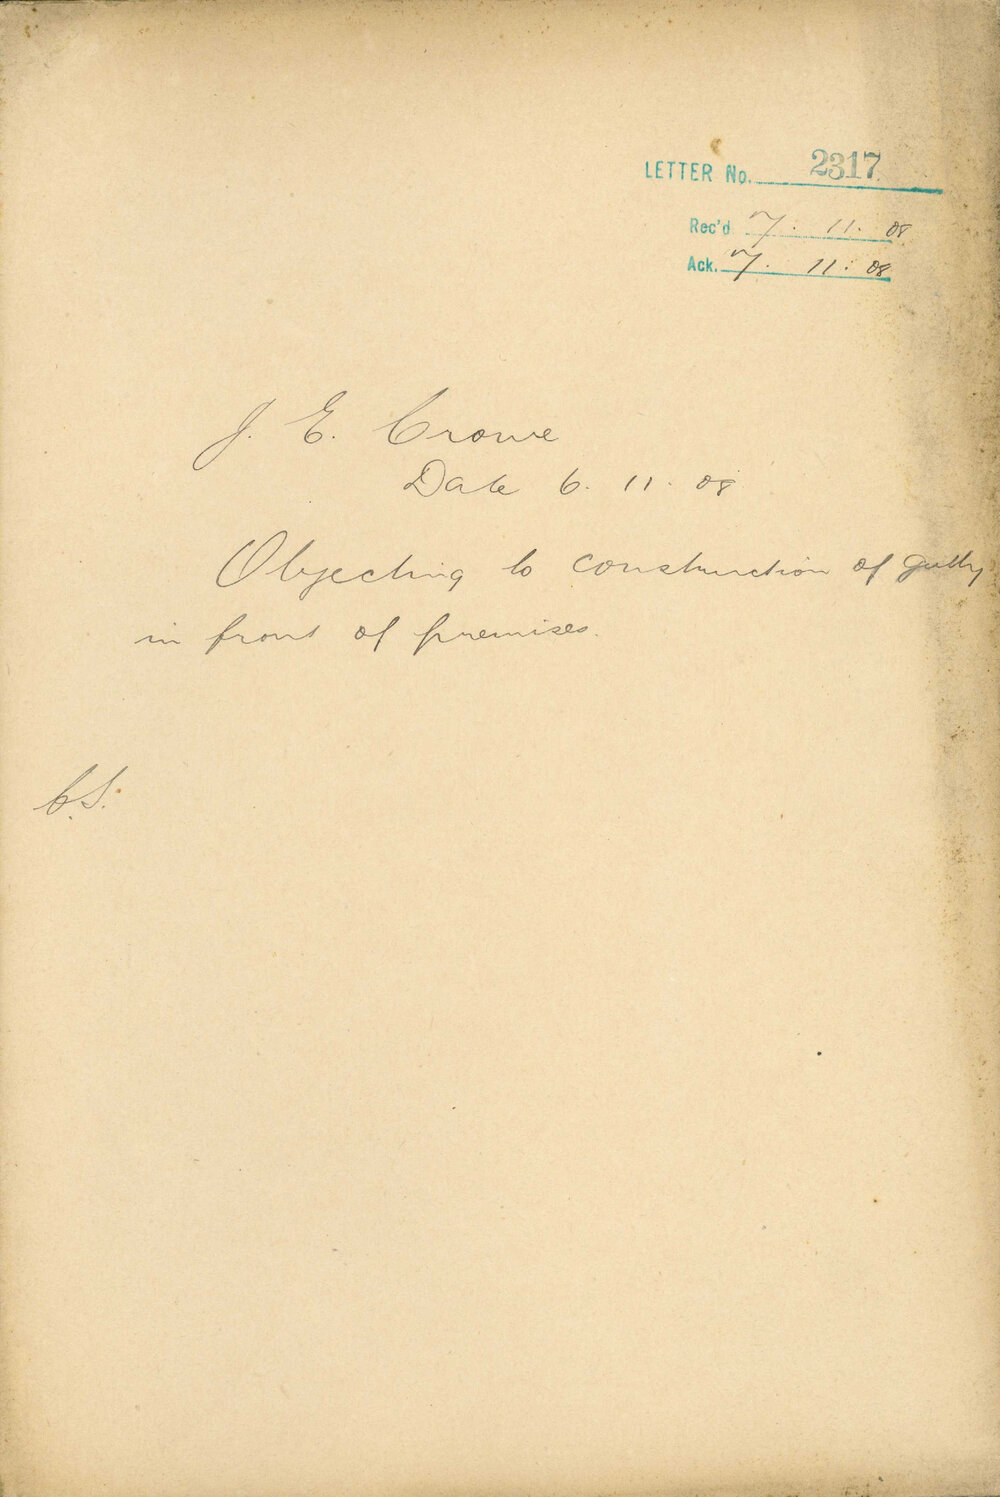 LETTER No. 2317
Rec'd 7. 11. 08
Ack. 7. 11. 08
J. E. Crowe
Date 6. 11. 08
Objecting to construction of gully
in front of premises.
C.S.